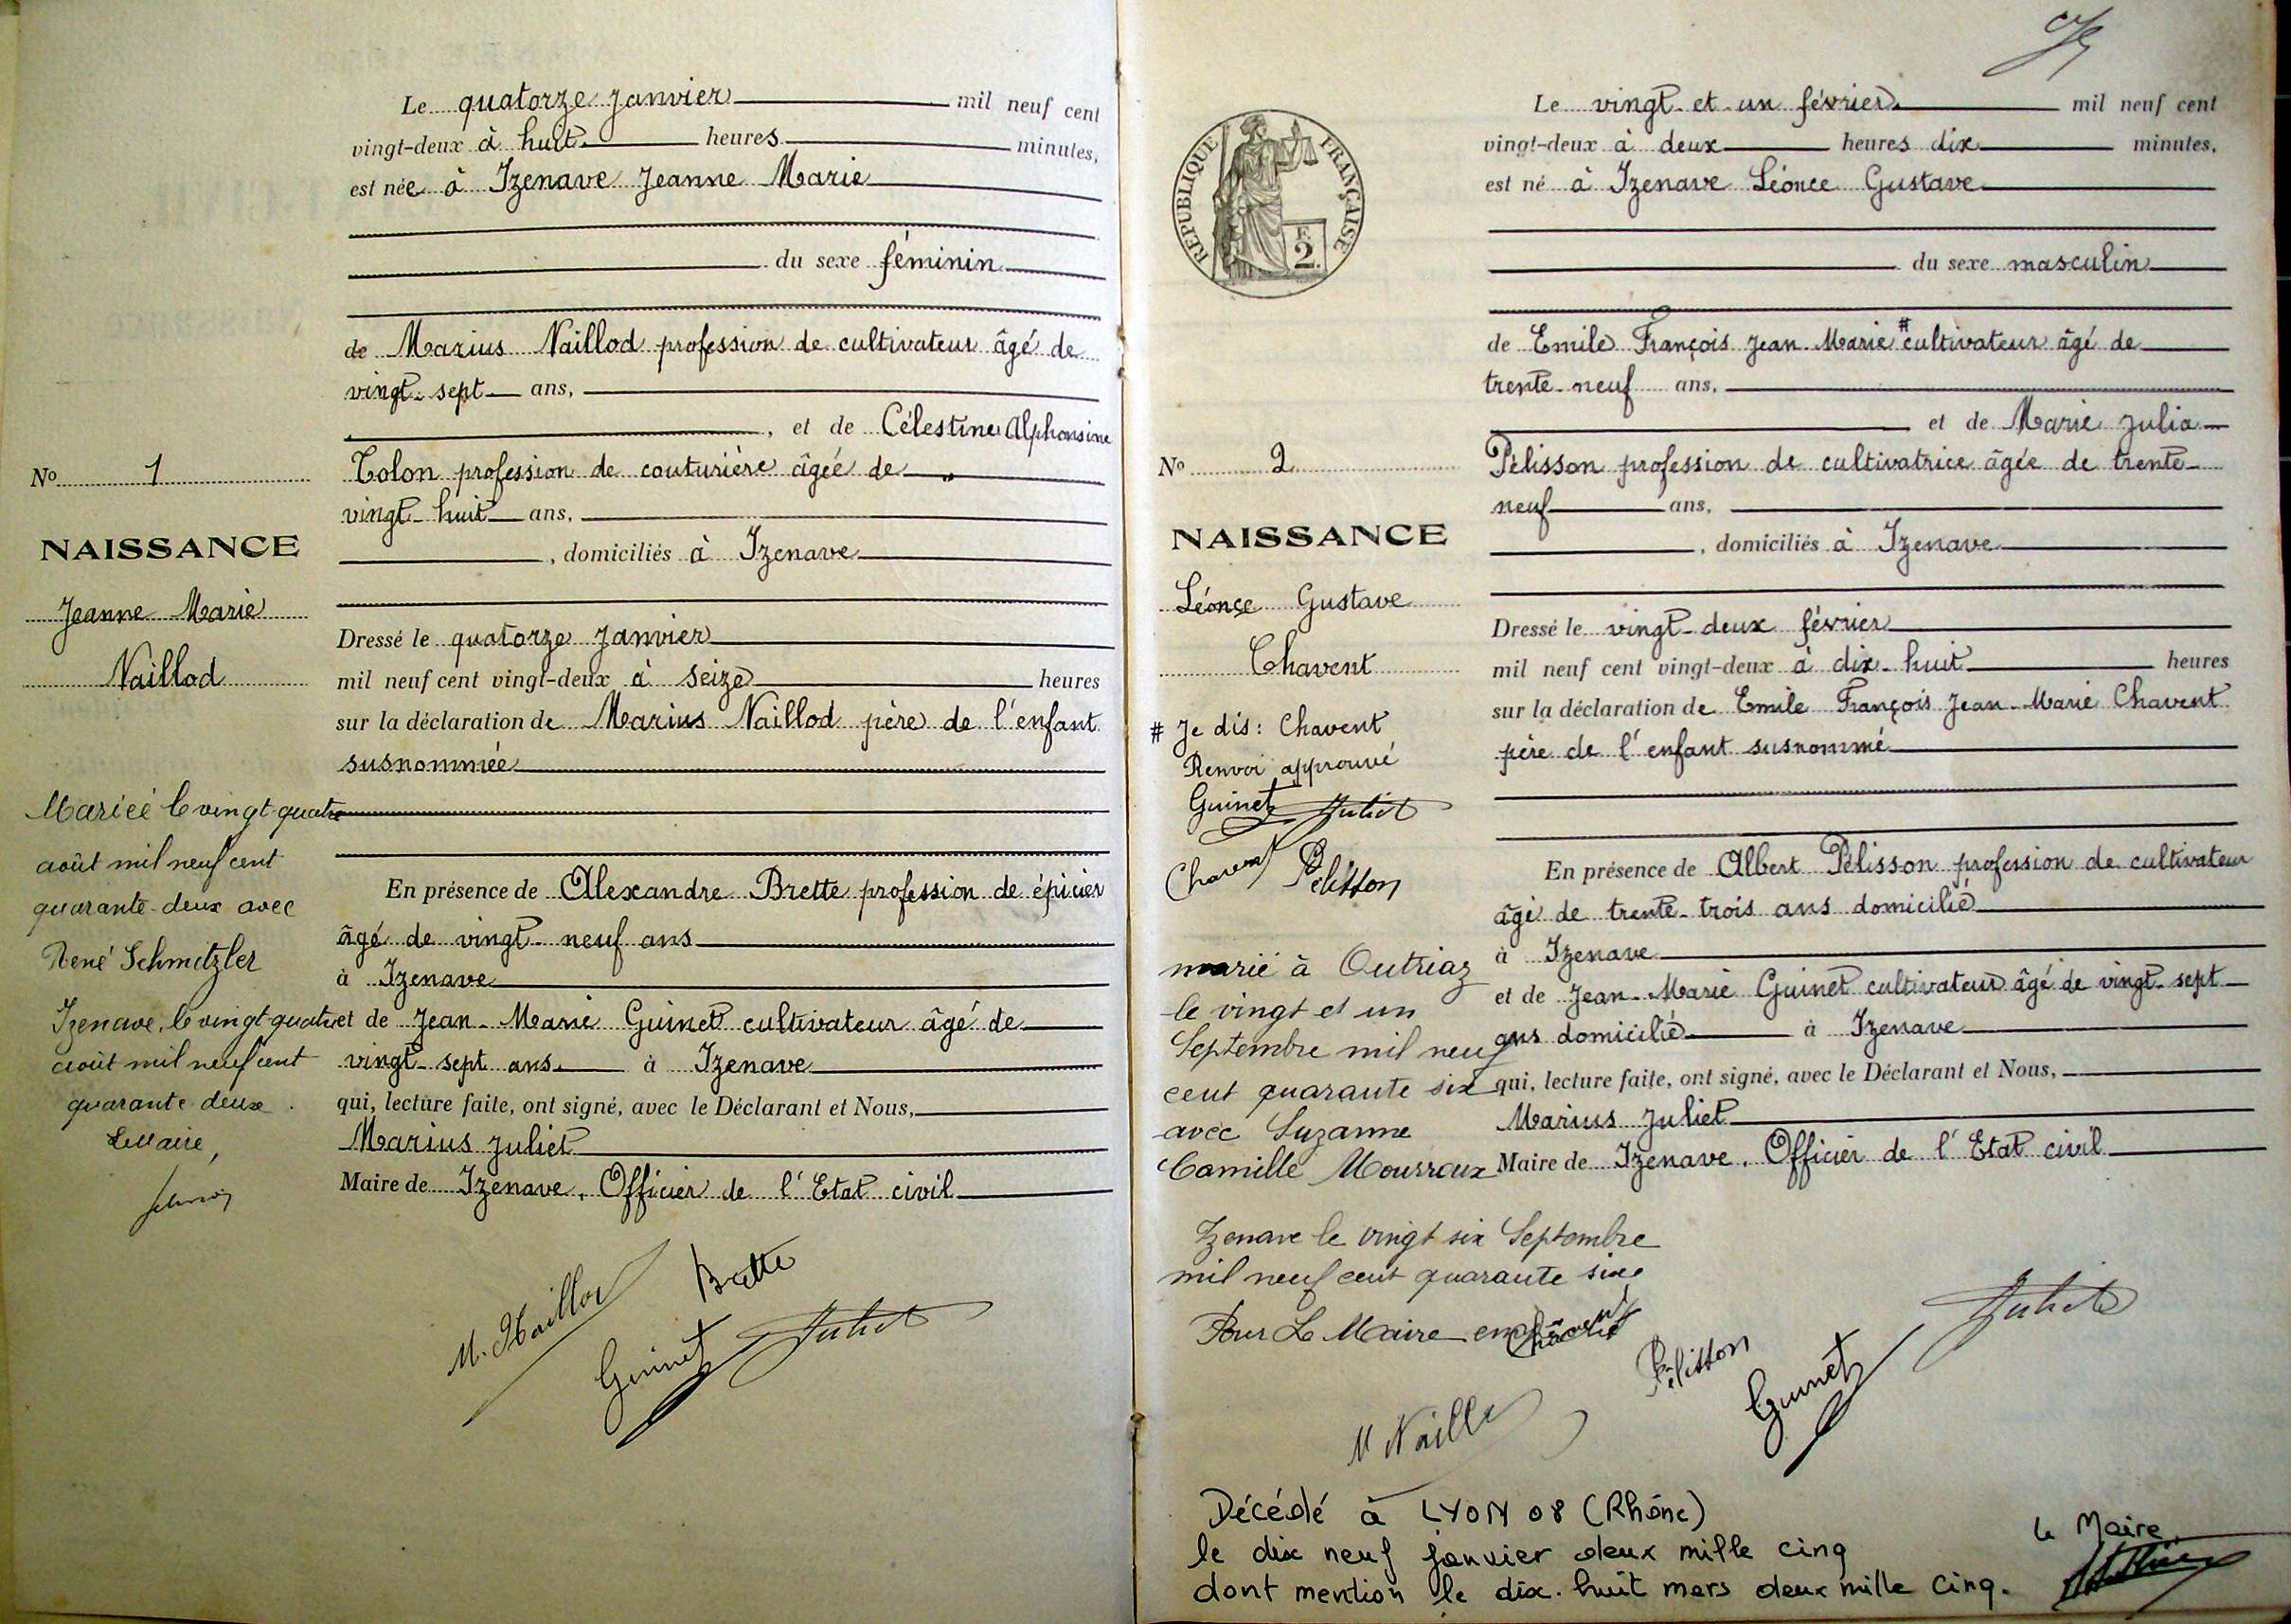 Le quatorze Janvier mil neuf cent
vingt-deux à huit heures minutes,
est née à Izenave Jeanne Marie
du sexe féminin
de Marius Naillod profession de cultivateur âgé de
vingt-sept ans,
, et de Célestine Alphonsine
Tolon profession de couturière âgée de
vingt-huit ans,
, domiciliés à Izenave
Dressé le quatorze Janvier
mil neuf cent vingt-deux à seize heures
sur la déclaration de Marius Naillod père de l'enfant
susnommée
En présence de Alexandre Brette profession de épicier
âgé de vingt-neuf ans
à Izenave
et de Jean-Marie Guinet cultivateur âgé de
vingt-sept ans à Izenave
qui, lecture faite, ont signé, avec le Déclarant et Nous,
Marius Juliet
Maire de Izenave, Officier de l'Etat civil
No 1
NAISSANCE
Jeanne Marie
Naillod
Mariée le vingt-quatre
août mil neuf cent
quarante-deux avec
René Schmitzler
Izenave, le vingt-quatre
août mil neuf cent
quarante deux.
Le Maire,
M. Naillod
Brette
Guinet
Juliet
Le vingt-et-un février mil neuf cent
vingt-deux à deux heures dix minutes,
est né à Izenave Léonce Gustave
du sexe masculin
de Emile François Jean-Marie # cultivateur âgé de
trente-neuf ans,
et de Marie Julia
Pélisson profession de cultivatrice âgée de trente-
neuf ans,
, domiciliés à Izenave
Dressé le vingt-deux février
mil neuf cent vingt-deux à dix-huit heures
sur la déclaration de Emile François Jean-Marie Chavent
père de l'enfant susnommé
En présence de Albert Pélisson profession de cultivateur
âgé de trente-trois ans domicilié
à Izenave
et de Jean-Marie Guinet cultivateur âgé de vingt-sept
ans domicilié à Izenave
qui, lecture faite, ont signé, avec le Déclarant et Nous,
Marius Juliet
Maire de Izenave, Officier de l'Etat civil
REPUBLIQUE FRANÇAISE
F.
2.
No 2
NAISSANCE
Léonce Gustave
Chavent
# Je dis: Chavent
Renvoi approuvé
Guinet Juliet
Chavent Pélisson
marié à Outriaz
le vingt et un
Septembre mil neuf
cent quarante six
avec Suzanne
Camille Mourroux
Izenave le vingt six Septembre
mil neuf cent quarante six
Pour Le Maire
Chavent
Pélisson
Guinet
Juliet
M Naillod
Décédé à LYON 08 (Rhône)
le dix neuf janvier deux mille cinq
dont mention le dix-huit mars deux mille cinq.
Le Maire